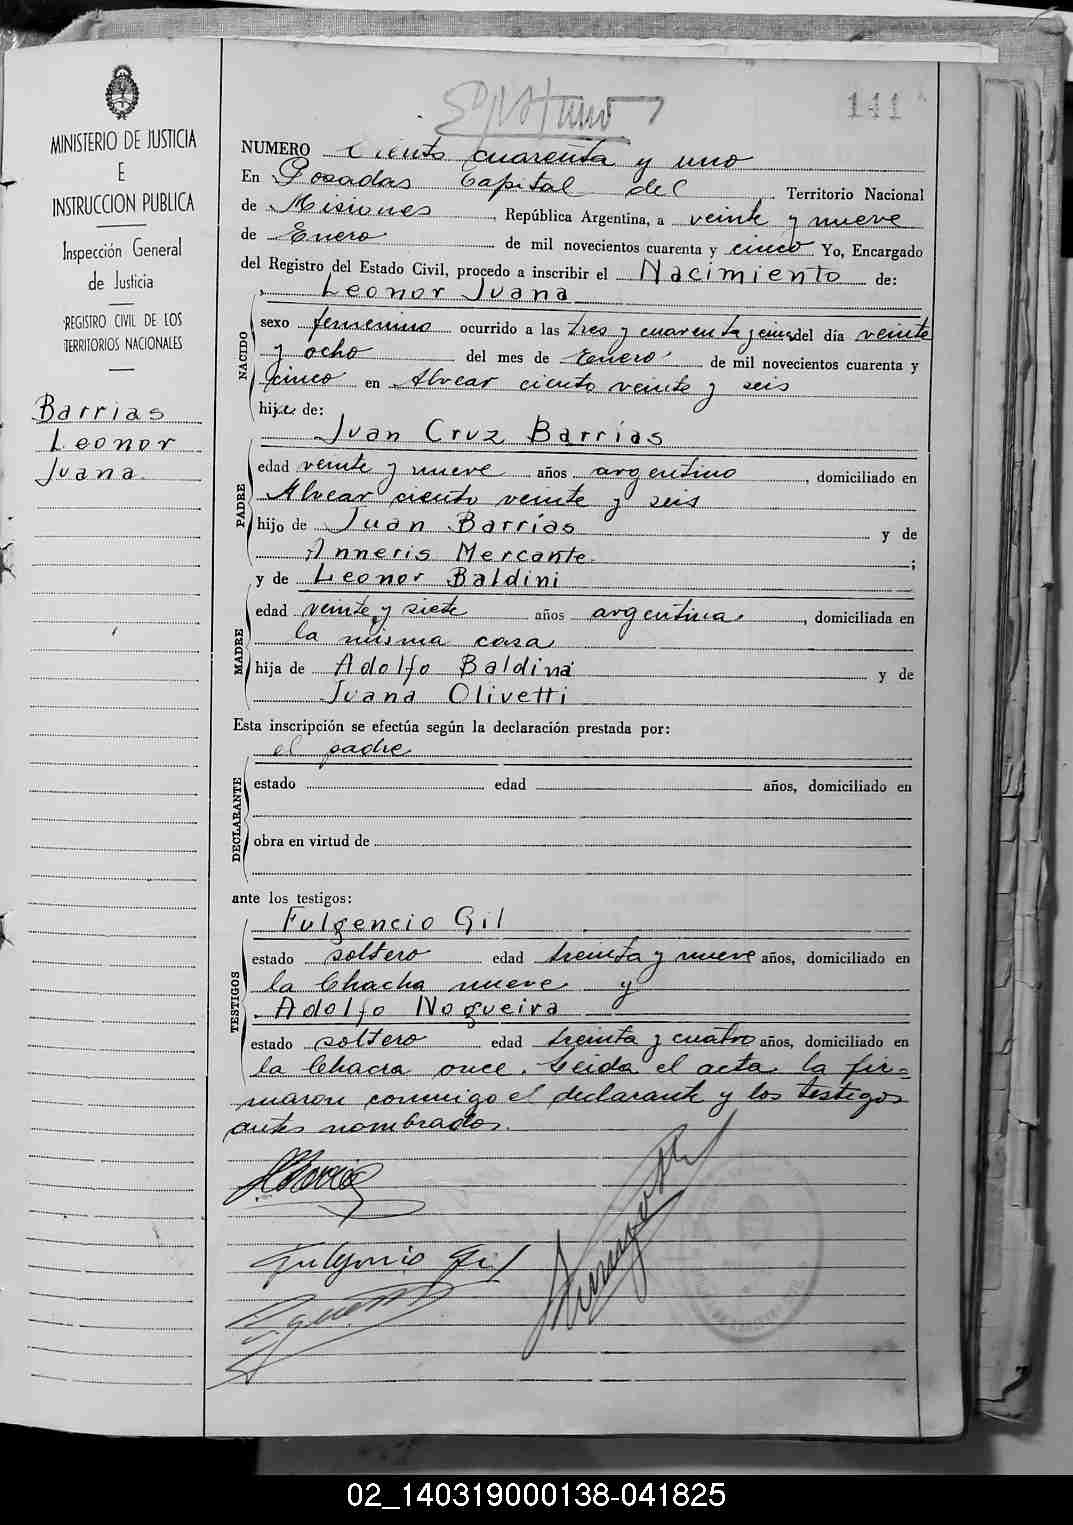 MINISTERIO DE JUSTICIA
E
INSTRUCCION PUBLICA
Inspección General
de Justicia
REGISTRO CIVIL DE LOS
TERRITORIOS NACIONALES
Barrias
Leonor
Juana
141
NUMERO Ciento cuarenta y uno
En Posadas Capital del Territorio Nacional
de Misiones, República Argentina, a veinte y nueve
de Enero de mil novecientos cuarenta y cinco Yo, Encargado
del Registro del Estado Civil, procedo a inscribir el Nacimiento de:
Leonor Juana
NACIDO
sexo femenino ocurrido a las tres y cuarenta y cinco del día veinte
y ocho del mes de Enero de mil novecientos cuarenta y
cinco en Alvear ciento veinte y seis
hija de:
Juan Cruz Barrias
PADRE
edad veinte y nueve años argentino, domiciliado en
Alvear ciento veinte y seis
hijo de Juan Barrias y de
Anneris Mercante;
y de Leonor Baldini
MADRE
edad veinte y siete años argentina, domiciliada en
la misma casa
hija de Adolfo Baldini y de
Juana Olivetti
Esta inscripción se efectúa según la declaración prestada por:
el padre
DECLARANTE
estado edad años, domiciliado en
obra en virtud de
ante los testigos:
Fulgencio Gil
TESTIGOS
estado soltero edad treinta y nueve años, domiciliado en
la Chacha nueve y
Adolfo Nogueira
estado soltero edad treinta y cuatro años, domiciliado en
la Chacra once. Leida el acta la fir=
maron conmigo el declarante y los testigos
antes nombrados.
Fulgencio Gil
02_140319000138-041825